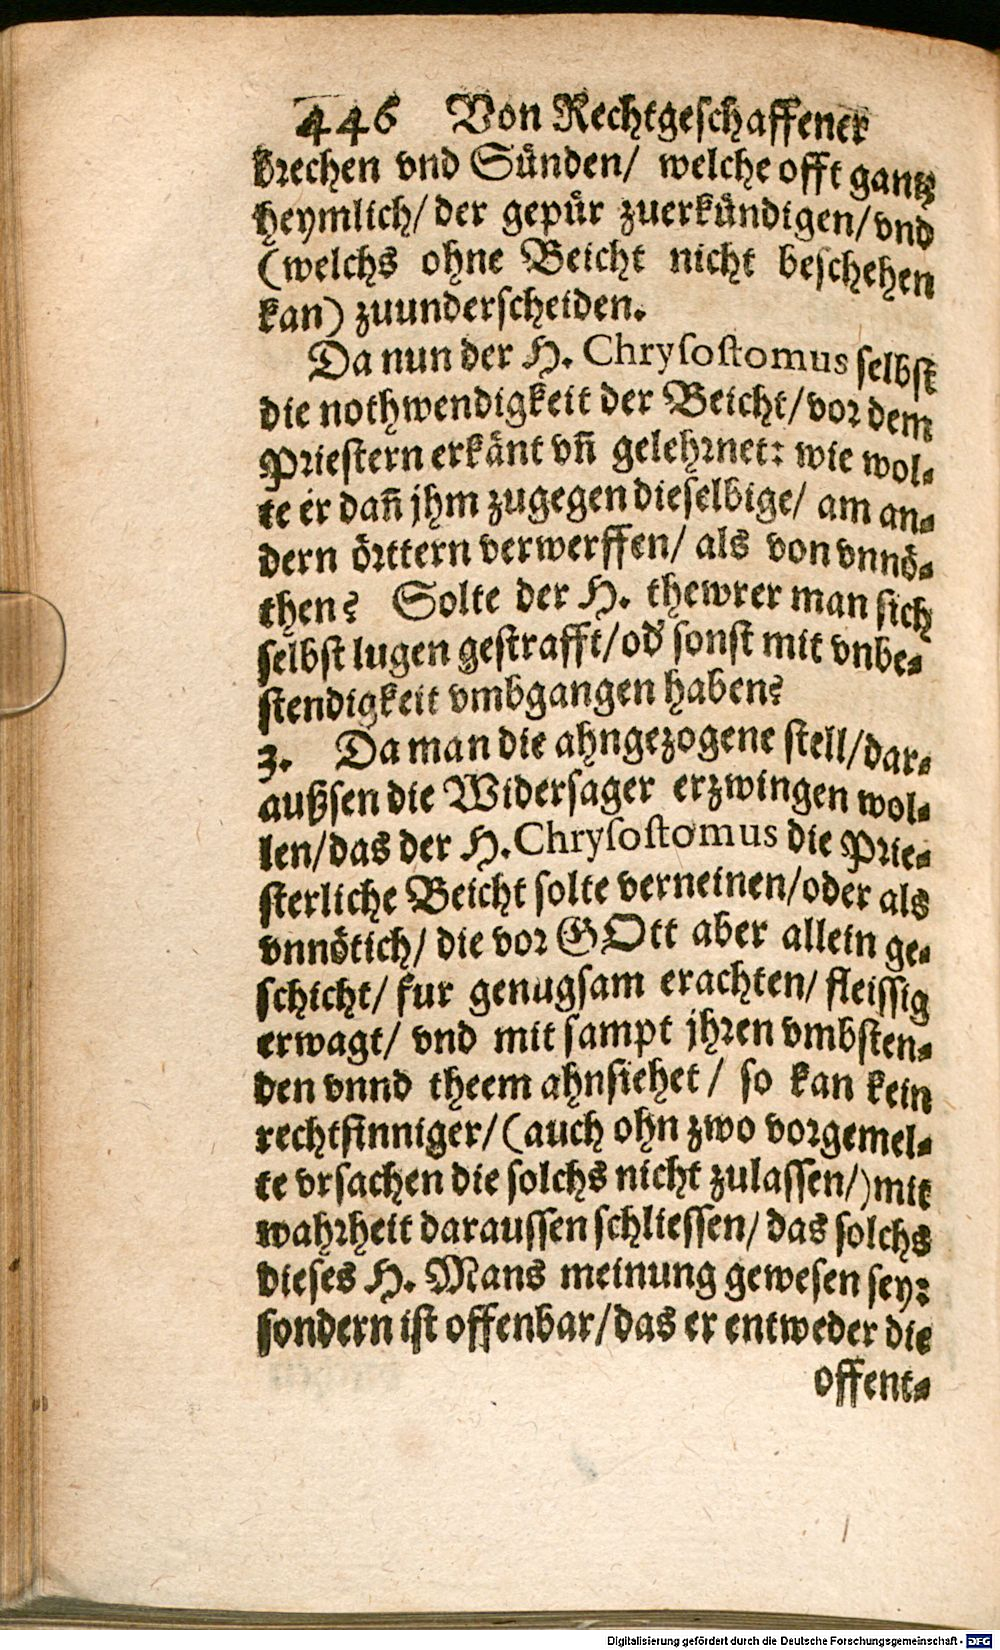 446 Von Rechtgeschaffener
brechen vnd Sünden/ welche offt gantz
heymlich/ der gepür zuerkündigen/ vnd
(welchs ohne Beicht nicht beschehen
kan) zuunderscheiden.
Da nun der H. Chrysostomus selbst
die nothwendigkeit der Beicht/ vor dem
Priestern erkänt vñ gelehrnet: wie wol-
te er dañ jhm zugegen dieselbige/ am an-
dern örttern verwerffen/ als von vnnö-
then? Solte der H. thewrer man sich
selbst lugen gestrafft/ od' sonst mit vnbe-
stendigkeit vmbgangen haben?
3. Da man die ahngezogene stell/ dar-
außsen die Widersager erzwingen wol-
len/ das der H. Chrysostomus die Prie-
sterliche Beicht solte verneinen/ oder als
vnnötich/ die vor GOtt aber allein ge-
schicht/ fur genugsam erachten/ fleissig
erwagt/ vnd mit sampt jhren vmbsten-
den vnnd theem ahnsiehet/ so kan kein
rechtsinniger/ (auch ohn zwo vorgemel-
te vrsachen die solchs nicht zulassen/) mit
wahrheit daraussen schliessen/ das solchs
dieses H. Mans meinung gewesen sey:
sondern ist offenbar/ das er entweder die
offent-
Digitalisierung gefördert durch die Deutsche Forschungsgemeinschaft - DFG